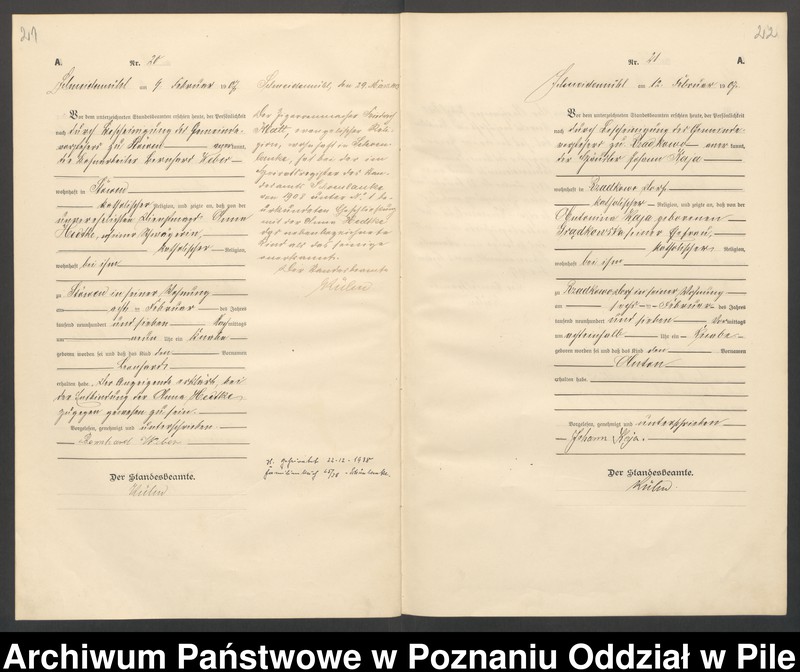 21
A.
Nr. 20
Schneidemühl am 9 Februar 1907
Vor dem unterzeichneten Standesbeamten erschien heute, der Persönlichkeit
nach durch Bescheinigung des Gemeinde-
vorstehers zu Stöwen anerkannt,
der Bernhard Weber
wohnhaft in Stöwen
katholischer Religion, und zeigte an, daß von der
unverehelichten Dienstmagd Anna
Hedtke, seiner Schwägerin,
katholischer Religion,
wohnhaft bei ihm
zu Stöwen in seiner Wohnung
am acht Februar des Jahres
tausend neunhundert und sieben mittags
um Uhr ein Knabe
geboren worden sei und daß das Kind den Vornamen
Leonhard
erhalten habe. Der Anzeigende erklärt, bei
der Entbindung der Anna Hedtke
zugegen gewesen zu sein
Vorgelesen, genehmigt und unterschrieben
Bernhard Weber
Der Standesbeamte.
Kühn
Schneidemühl, den 29. März
Der Friedrich
evangelischer Reli-
gion, wohnhaft in
hat bei der im
Geburtsregister des Stan-
desamts
1908 unter Nr.
urkundeten Eheschließung
mit der Anna Hedtke
das nebenbezeichnete
Kind als das seinige
anerkannt.
Der Standesbeamte
Kühn
geheiratet 22-12-1938
Familienbuch
22
Nr. 21
A.
Schneidemühl am 12. Februar 1907.
Vor dem unterzeichneten Standesbeamten erschien heute, der Persönlichkeit
nach durch Bescheinigung des Gemeinde-
vorstehers zu Kradkowo anerkannt,
der Häusler Johann Kaja
wohnhaft in Kradkowo Dorf
katholischer Religion, und zeigte an, daß von der
Antonina Kaja geborenen
seiner Ehefrau,
katholischer Religion,
wohnhaft bei ihm
zu Kradkowo Dorf in seiner Wohnung
am sechs Februar des Jahres
tausend neunhundert und sieben Vormittags
um achteinhalb Uhr ein Knabe
geboren worden sei und daß das Kind den Vornamen
Anton
erhalten habe.
Vorgelesen, genehmigt und unterschrieben
Johann Kaja.
Der Standesbeamte.
Kühn
Archiwum Państwowe w Poznaniu Oddział w Pile